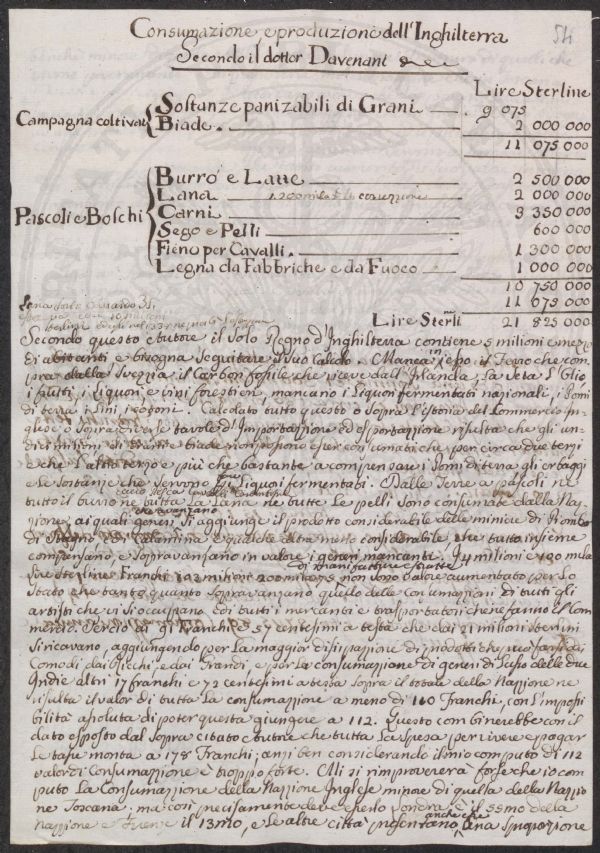 54
Consumazione, e produzione dell'Inghilterra
Secondo il dottor Davenant
Lire Sterline
Campagna coltivat
Sostanze panizabili di Grani 9 075
Biade 2 000 000
11 075 000
Pascoli e Boschi
Burro e Latte 2 500 000
Lana 2 000 000
Carni 3 350 000
Sego e Pelli 600 000
Fieno per Cavalli 1 300 000
Legna da Fabbriche e da Fuoco 1 000 000
10 750 000
11 075 000
Lire Sterli 21 825 000
Secondo questo autore il Solo Regno d'Inghilterra contiene 5 milioni e mezzo
di abitanti e bisogna Seguitare il suo Calcolo. Manca il Ferro che com
pra dalla Svezia il Carbon fossile che riceve dall'Irlanda, La Seta L'Olio
i frutti, i Liquori e vini forestieri, mancano i Liquori fermentati nazionali, i Pomi
di terra i Lini, i cotoni. Calcolato tutto questo o Sopra l'istoria del Commercio In
glese o Sopra diverse tavole d'Importazione ed esportazione risulta che gli un
dici milioni di Grani e biade non possono esser consumati che per circa due terzi
e che l'altro terzo è più che bastante a compensare i Pomi di terra gli ortaggi
e Le Sostanze che Servono Liquori fermentati. Dalle Terre a pascoli ne
tutto il burro ne tutta La Lana, ne tutte Le pelli Sono consumate dalla Na
zione, ai quali generi Si aggiunge il prodotto considerabile delle miniere di Piombo
di Stagno di Calamina e qualche altra molto considerabile, che tutto insieme
compensano, e Sopravanzano in valore i generi mancanti.
Lire Sterline Franchi non Sono Valore aumentato per Lo
Stato che tanto quanto Sopravanzano quello delle consumazioni Di tutti gli
artisti che vi Si occupano e di tutti i mercanti e trasportatori che ne fanno il Com
mercio. Perciò ai 91 Franchi e 57 centesimi a testa che dai 21 milioni Sterlini
Si ricavano, aggiungendo per La maggior dissipazione di prodotti che
Comodi dai Ricchi e dai Grandi, e per La consumazione di generi di Lusso delle due
Indie altri 17 franchi e 72 centesimi a testa Sopra il totale della Nazione ne
risulta il valor di tutta La consumazione a meno di 110 Franchi, con l'impossi
bilità assoluta di poter questa giungere a 112. Questo combinerebbe con il
dato opposto dal Sopra citato autore che tutta La Spesa per vivere e pagar
Le tasse monta a 178 Franchi; anzi ben considerando il mio computo di 112
valor di Consumazione è troppo forte. Mi si rimprovererà forse che io com
puto La Consumazione della Nazione Inglese minore di quella della Nazio
ne Toscana. ma così precisamente deve esserlo Londra è il 55mo della
Nazione e Firenze il 13mo, e Le altre città